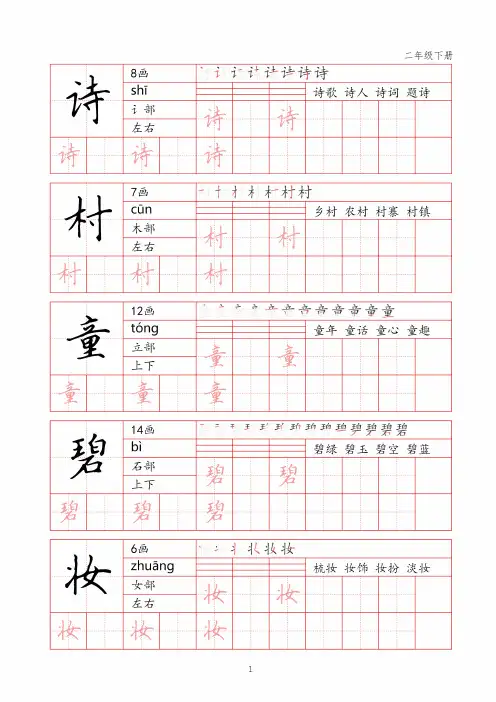 二年级下册
诗
8画
shī
讠部
左右
诗诗
诗歌 诗人 诗词 题诗
诗 诗
诗 诗 诗
村
7画
cūn
木部
左右
村村
乡村 农村 村寨 村镇
村 村
村 村 村
童
12画
tóng
立部
上下
童童
童年 童话 童心 童趣
童 童
童 童 童
碧
14画
bì
石部
上下
碧碧
碧绿 碧玉 碧空 碧蓝
碧 碧
碧 碧 碧
妆
6画
zhuāng
女部
左右
妆妆
梳妆 妆饰 妆扮 淡妆
妆 妆
妆 妆 妆
1